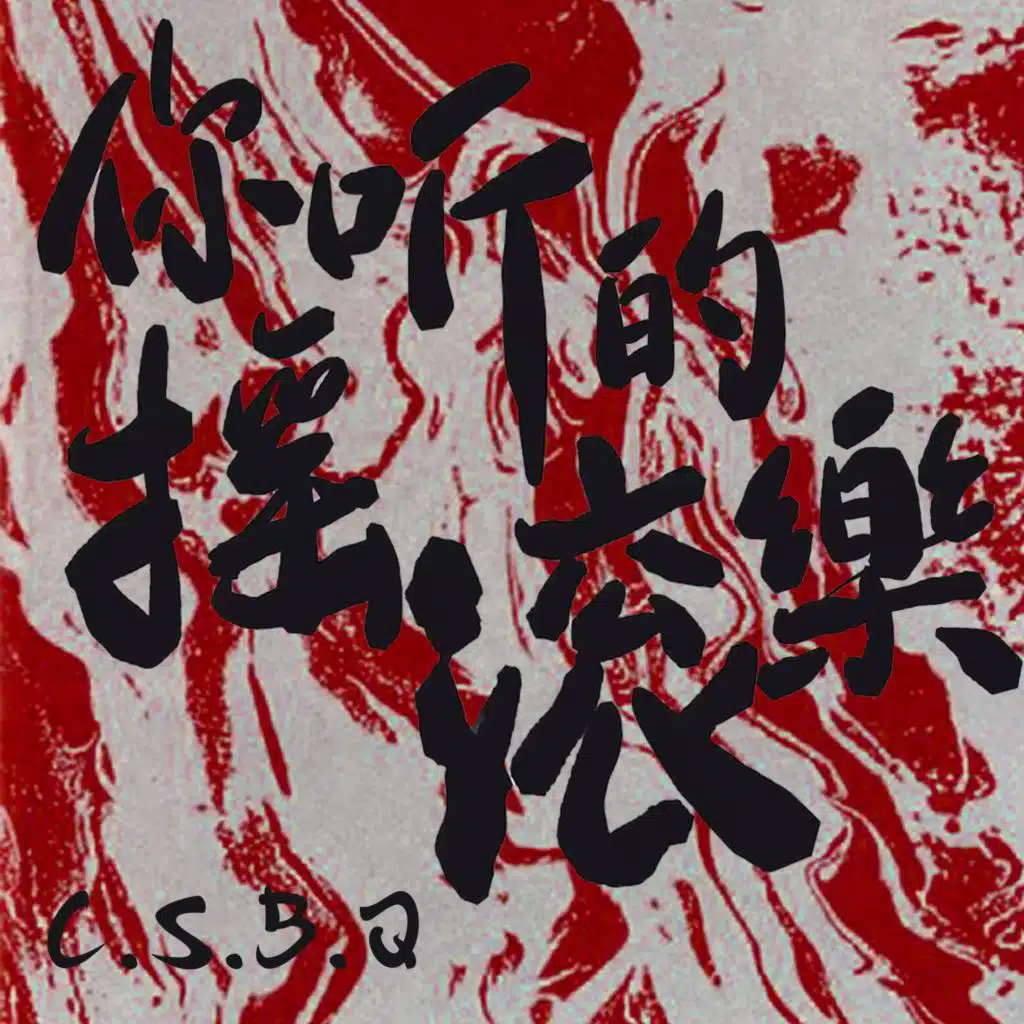 你听的
摇滚樂
C.S.B.Q